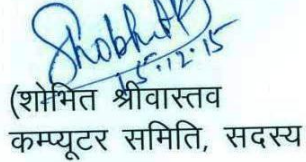 Shobhit
15.12.15
(शोभित श्रीवास्तव
कम्प्यूटर समिति, सदस्य